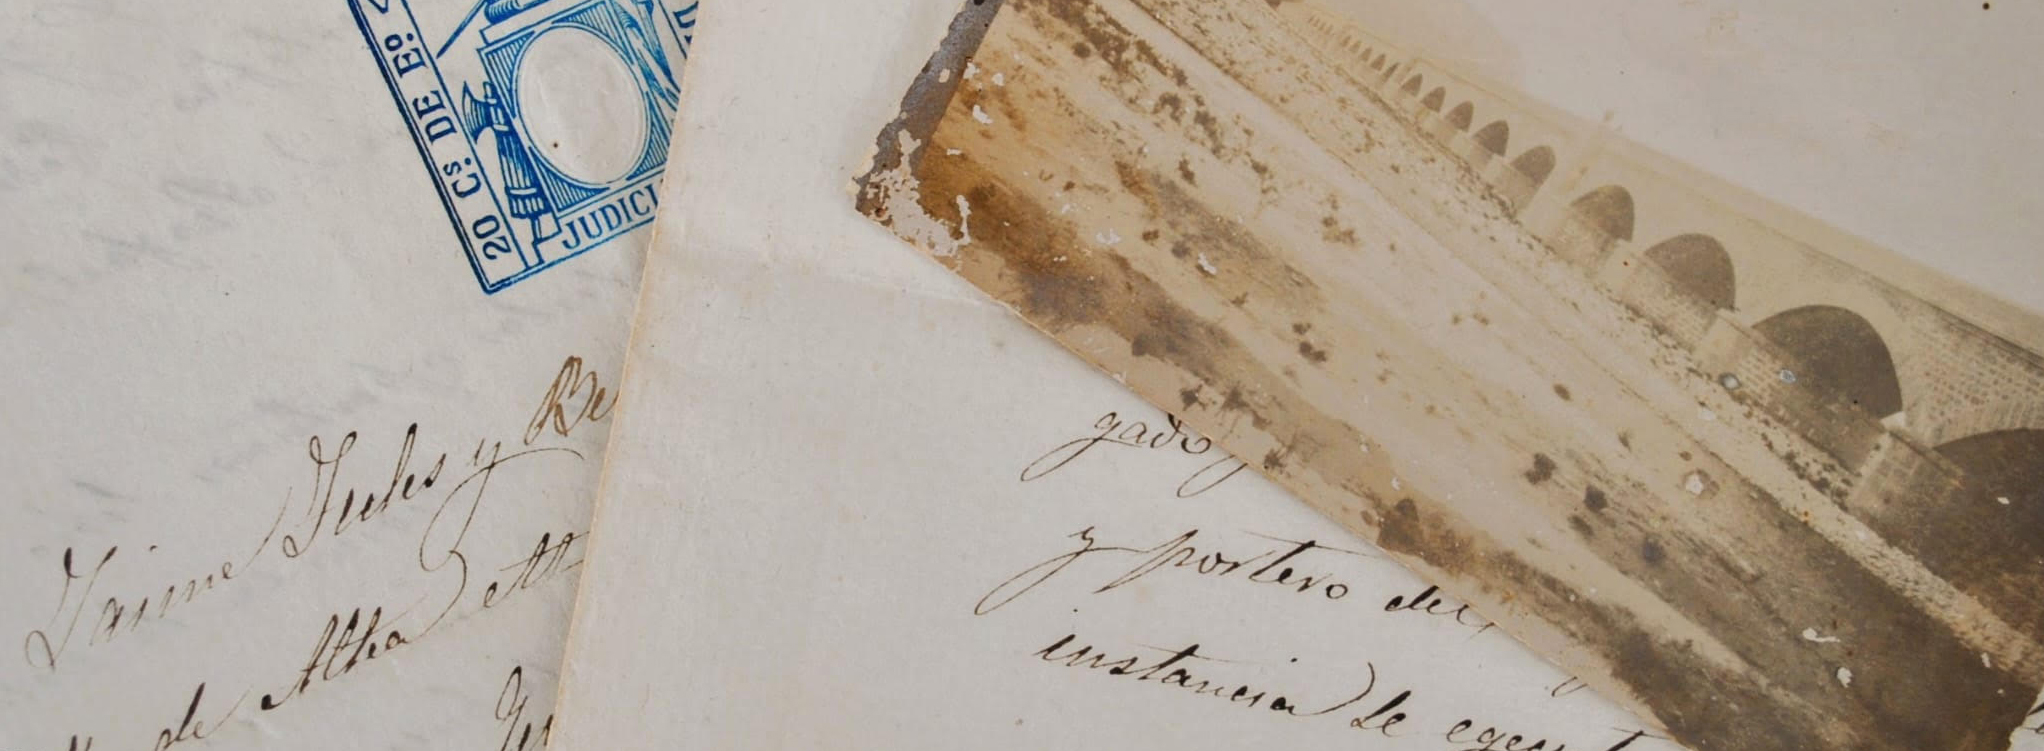 20 Cs. DE Eo.
JUDICI
Jaime
y Be
de Alba
gado
y portero del
instancia de egecut